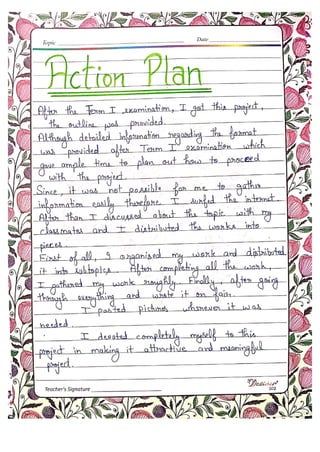 Topic
Date
Action Plan
After the Term I examination, I got this project,
the outline was provided.
Although detailed information regarding the format
was provided after Term I examination which
gave ample time to plan out how to proceed
with the project.
Since, it was not possible for me to gather
information easily therefore I surfed the internet.
After than I discussed about the topic with my
classmates and I distributed the works into
pieces.
First of all, I organised my work and distributed
it into subtopics. After completing all the work,
I gathered my work roughly. Finally, after going
through everything and wrote it on fair.
I pasted pictures whenever it was
needed.
I devoted completely myself to this
project in making it attractive and meaningful
project.
Teacher's Signature